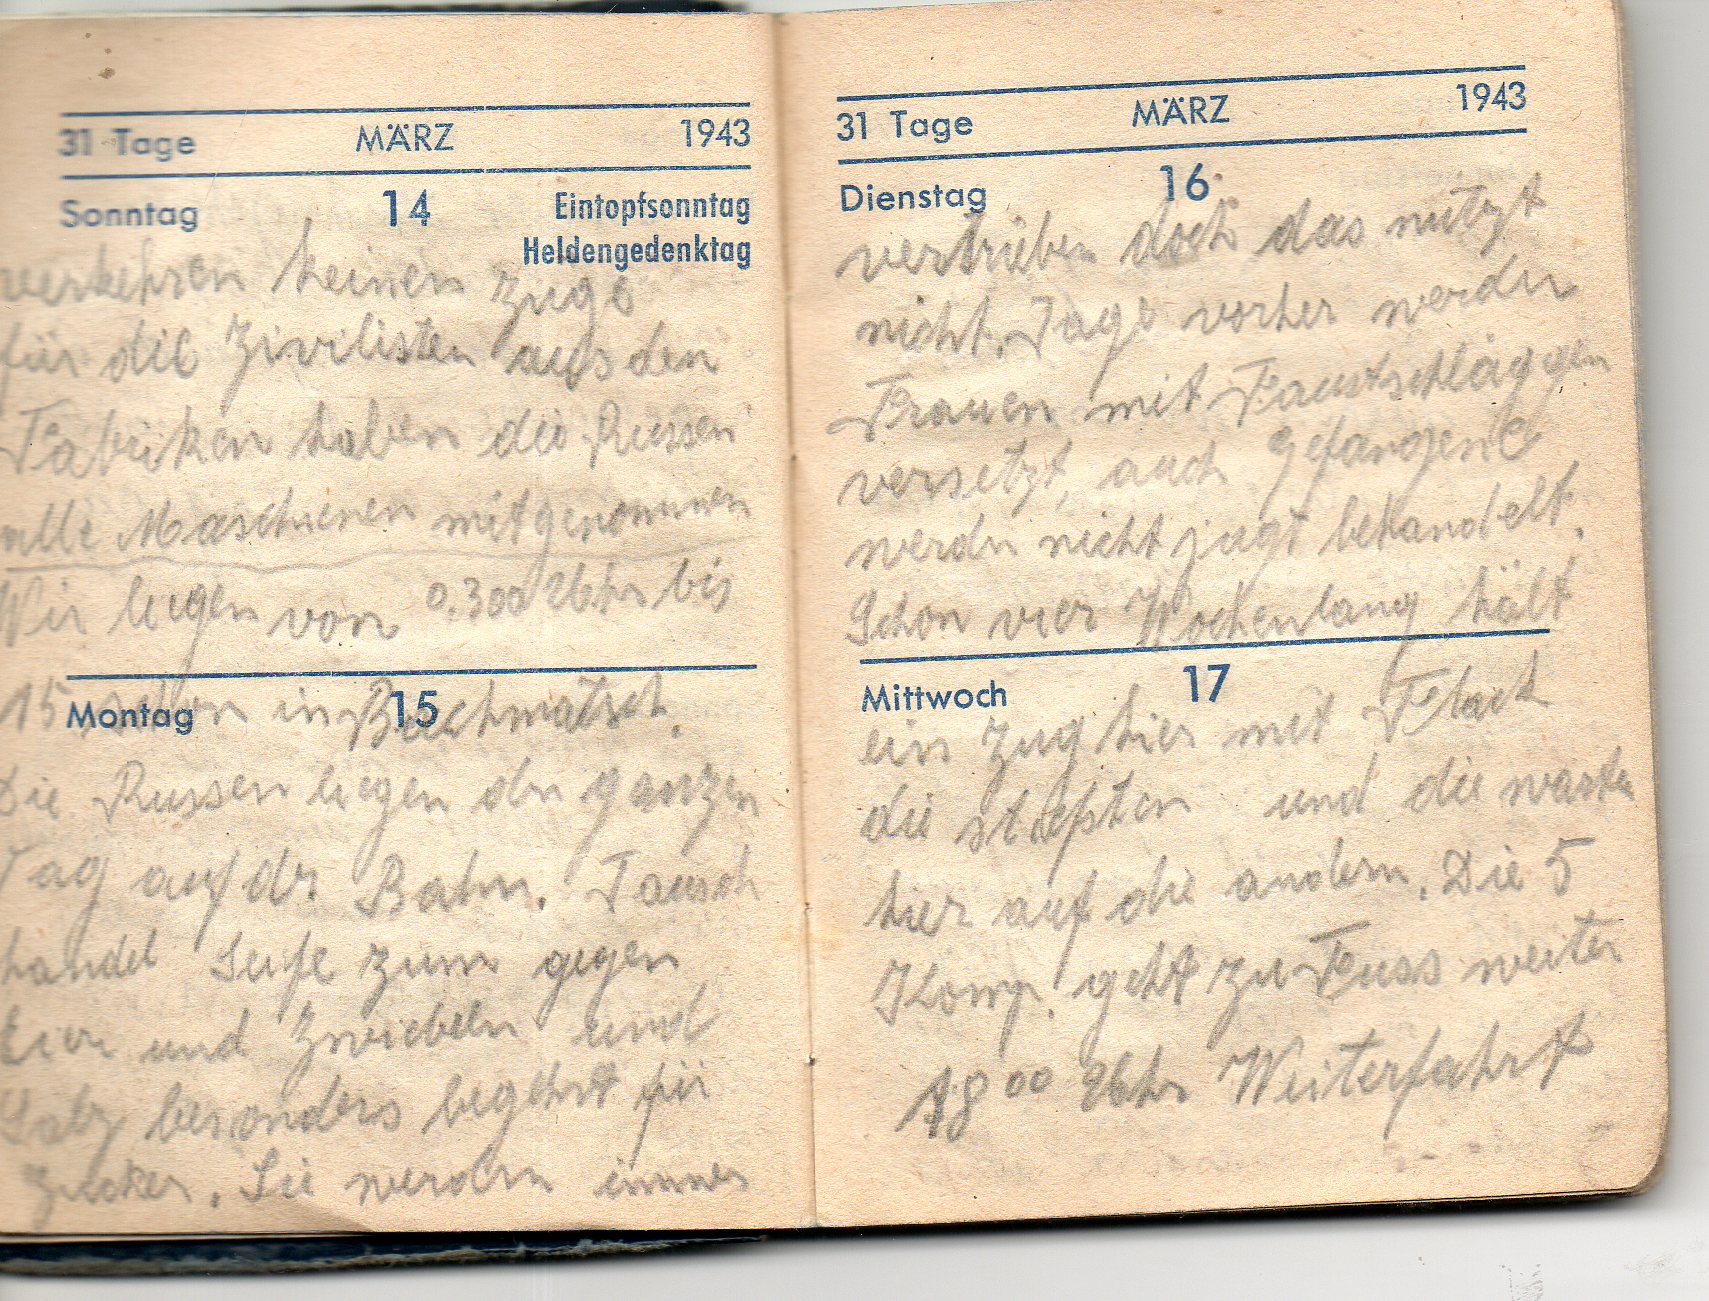 31 Tage MÄRZ 1943
Sonntag 14 Eintopfsonntag
Heldengedenktag
verkehren keinen Züge
für die Zivilisten aus den
Fabriken haben die Russen
alle Maschienen mitgenommen
Wir liegen von 0.300 Uhr bis
Montag 15
15 schon in Bachmatsch.
Die Russen liegen den ganzen
Tag auf dr. Bahn. Tausch
handel Seife zum gegen
Eier und Zwiebeln und
Salz besonders begehrt für
Zucker. Sie werden immer
31 Tage MÄRZ 1943
Dienstag 16
vertrieben doch das nützt
nicht. Tage vorher werden
Frauen mit Faustschläggen
versetzt, auch gefangene
werdn nicht jagt behandelt.
Schon vier Wochenlang hält
Mittwoch 17
ein Zug hier mit Flack
die und die warten
hier auf die andern. Die 5
Komp. geht zu Fuss weiter
18 00 Uhr Weiterfahrt